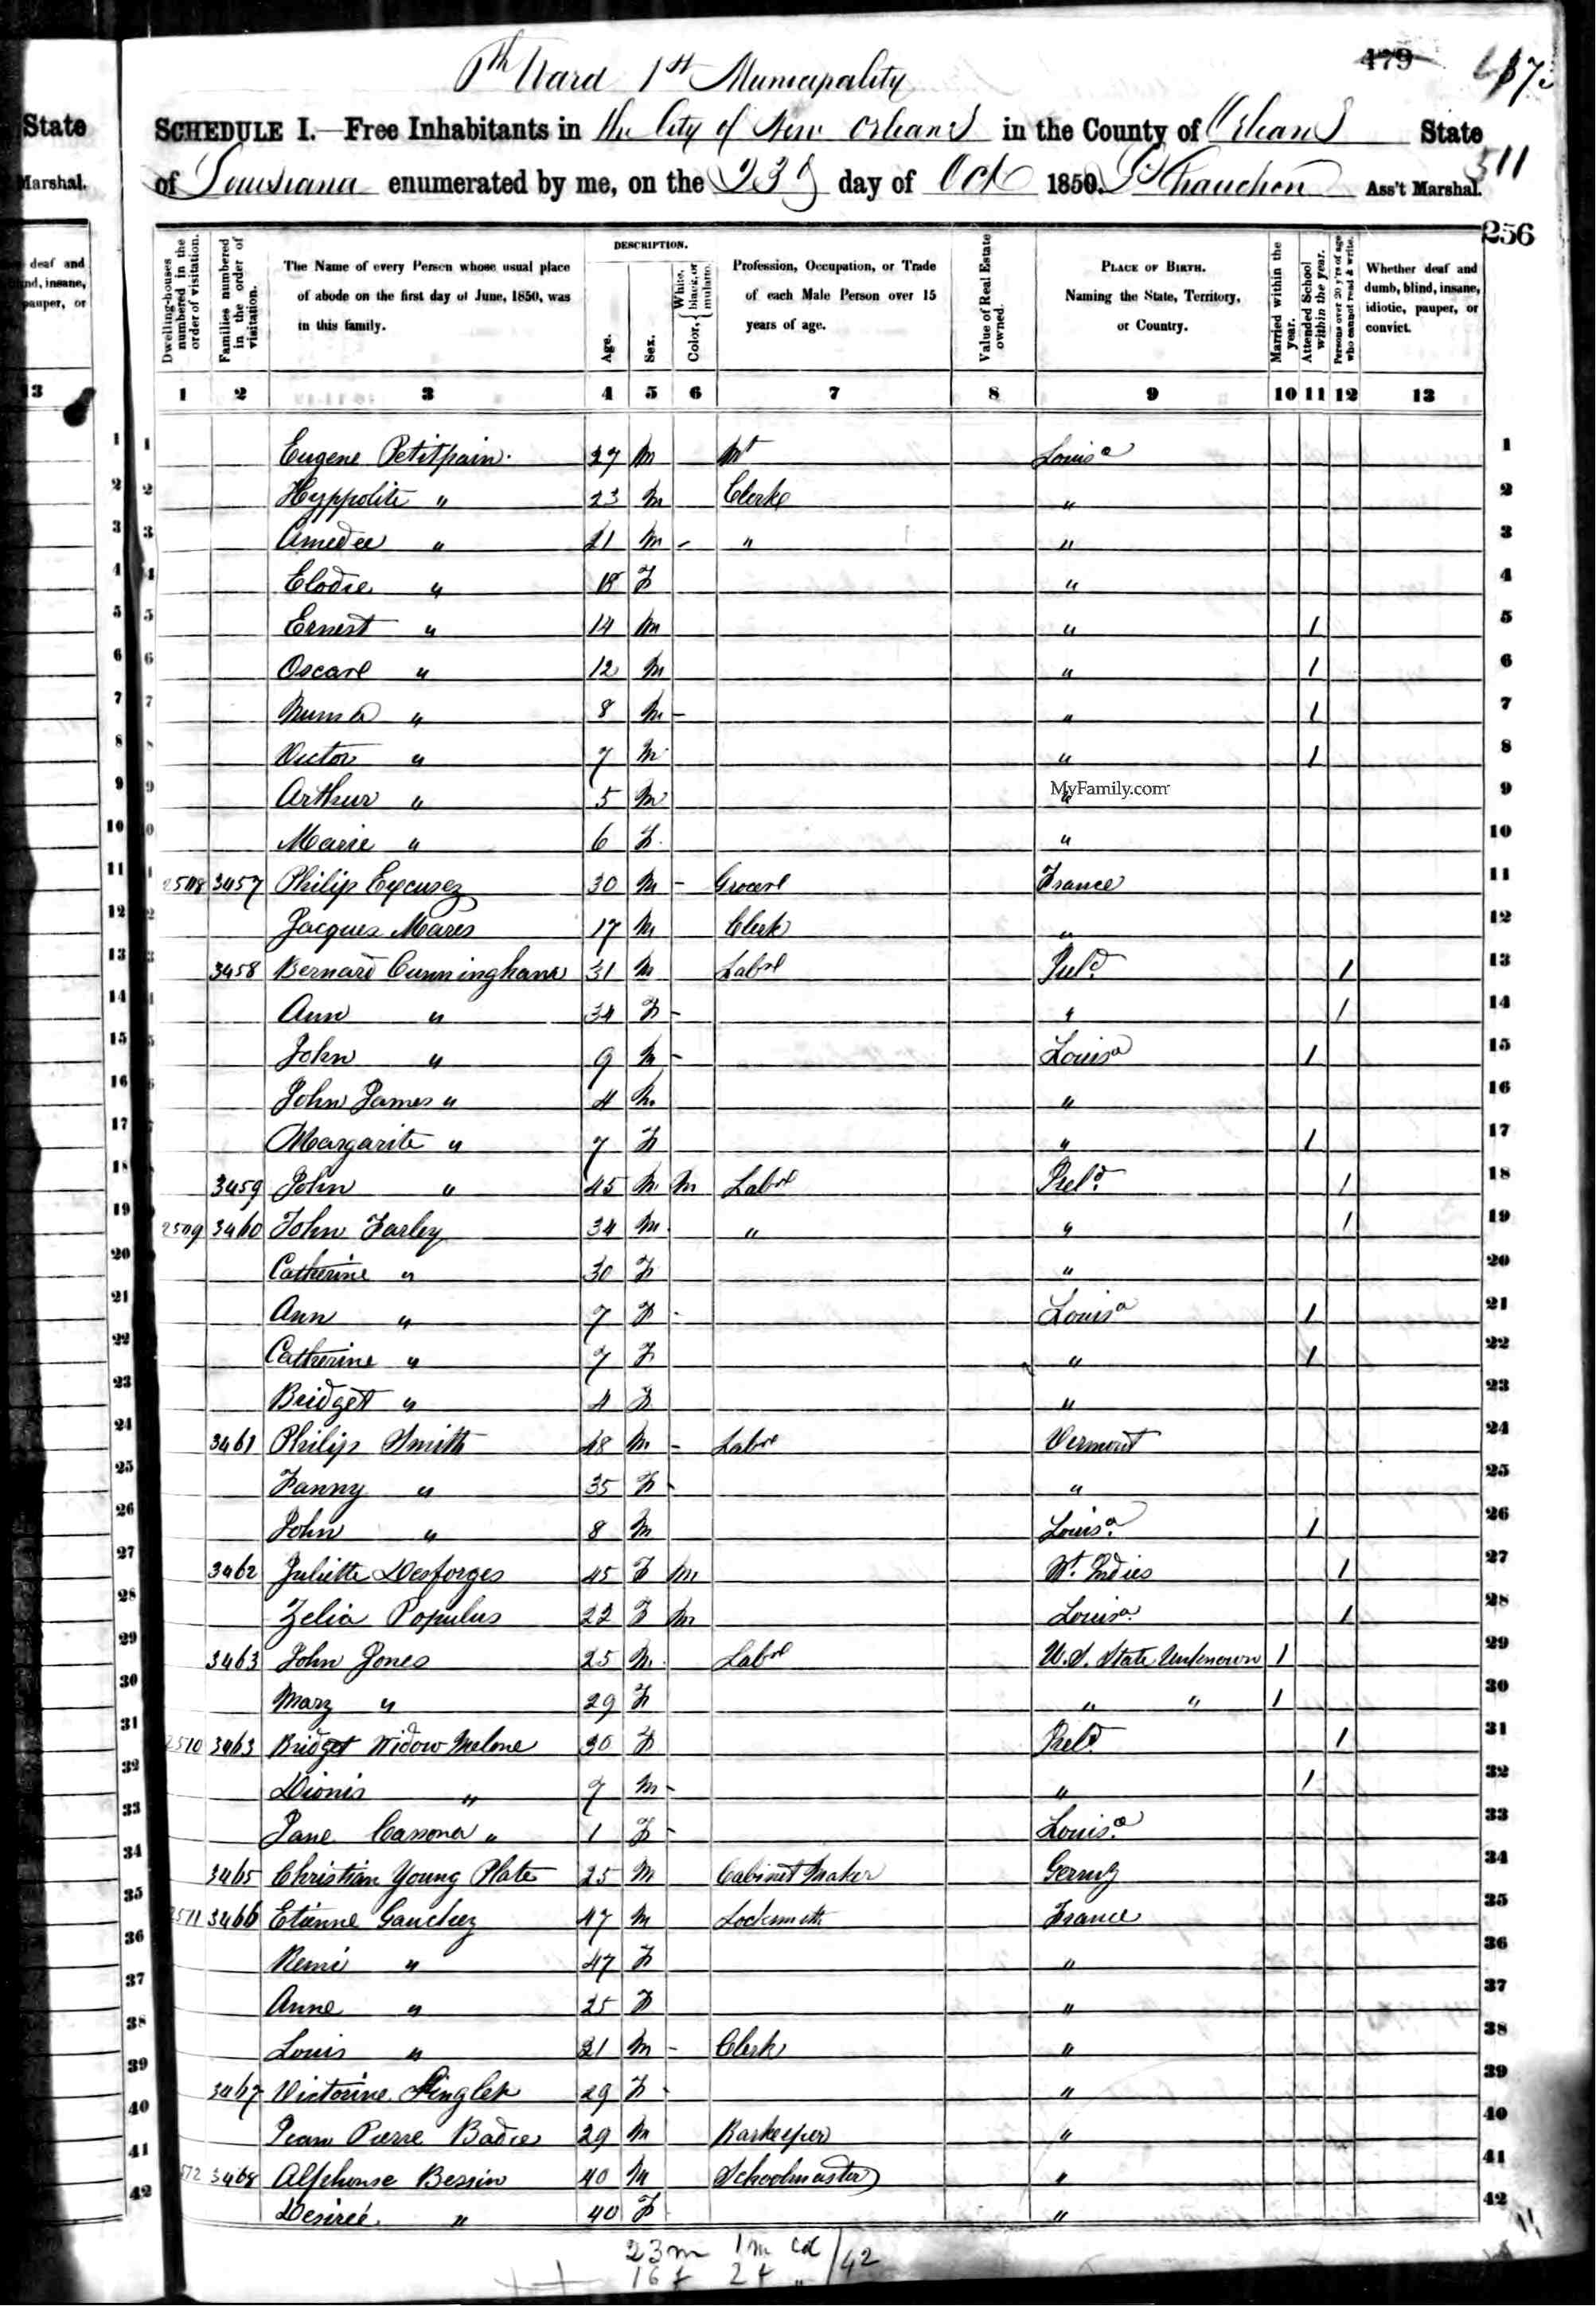 6th Ward 1st Municipality
479
SCHEDULE I.—Free Inhabitants in the City of New Orleans in the County of Orleans State
of Louisiana enumerated by me, on the 23d day of Oct 1850. Ass't Marshal.
511
256
State
Marshal.
deaf and
nd, insane,
pauper, or
13
DESCRIPTION.
Dwelling-houses numbered in the order of visitation.
Families numbered in the order of visitation.
The Name of every Person whose usual place of abode on the first day of June, 1850, was in this family.
Age.
Sex.
Color, White, black, or mulatto.
Profession, Occupation, or Trade of each Male Person over 15 years of age.
Value of Real Estate owned.
PLACE OF BIRTH. Naming the State, Territory, or Country.
Married within the year.
Attended School within the year.
Persons over 20 y'rs of age who cannot read & write.
Whether deaf and dumb, blind, insane, idiotic, pauper, or convict.
1 2 3 4 5 6 7 8 9 10 11 12 13
1 Eugene Petitpain 27 M Mt Louisa 1
2 Hyppolite " 23 M Clerk " 2
3 Amedee " 21 M - " " 3
4 Elodie " 18 F " 4
5 Ernest " 14 M " 1 5
6 Oscare " 12 M " 1 6
7 Numa " 8 M - " 1 7
8 Victor " 7 M " 1 8
9 Arthur " 5 M " 9
MyFamily.com
10 Marie " 6 F " 10
11 2508 3457 Philip Excusez 30 M - Grocer France 11
12 Jacques Mares 17 M Clerk " 12
13 3458 Bernard Cunningham 31 M Labr Ireld. 1 13
14 Ann " 34 F - " 1 14
15 John " 9 M - Louisa 1 15
16 John James " 4 M " 16
17 Margarite " 7 F " 1 17
18 3459 John " 45 M M Labr Ireld. 1 18
19 2509 3460 John Farley 34 M " " 1 19
20 Catherine " 30 F " 20
21 Ann " 7 F - Louisa 1 21
22 Catherine " 7 F " 1 22
23 Bridget " 4 F " 23
24 3461 Philip Smith 48 M - Labr Vermont 24
25 Fanny " 35 F - " 25
26 John " 8 M Louisa. 1 26
27 3462 Juliette Desforges 45 F M Wt. Indies 1 27
28 Zelia Populus 22 F M Louisa. 1 28
29 3463 John Jones 25 M Labr U.S. State Unknown 1 29
30 Mary " 29 F " " 1 30
31 2510 3463 Bridget Widow Malone 30 F Ireld. 1 31
32 Dionis " 7 M - " 1 32
33 Jane " 1 F - Louisa. 33
34 3465 Christian Young Plate 25 M Cabinet Maker Germy 34
35 2511 3466 Etienne Gauchez 47 M Locksmith France 35
36 Remi " 47 F " 36
37 Anne " 25 F " 37
38 Louis " 21 M - Clerk " 38
39 3467 Victorine 29 F - " 39
40 Jean Pierre Badie 29 M Barkeeper " 40
41 3468 Alphonse Bessin 40 M Schoolmaster " 41
42 Desireé " 40 F " 42
23 m 1 m cd /42
16 f 2 f "